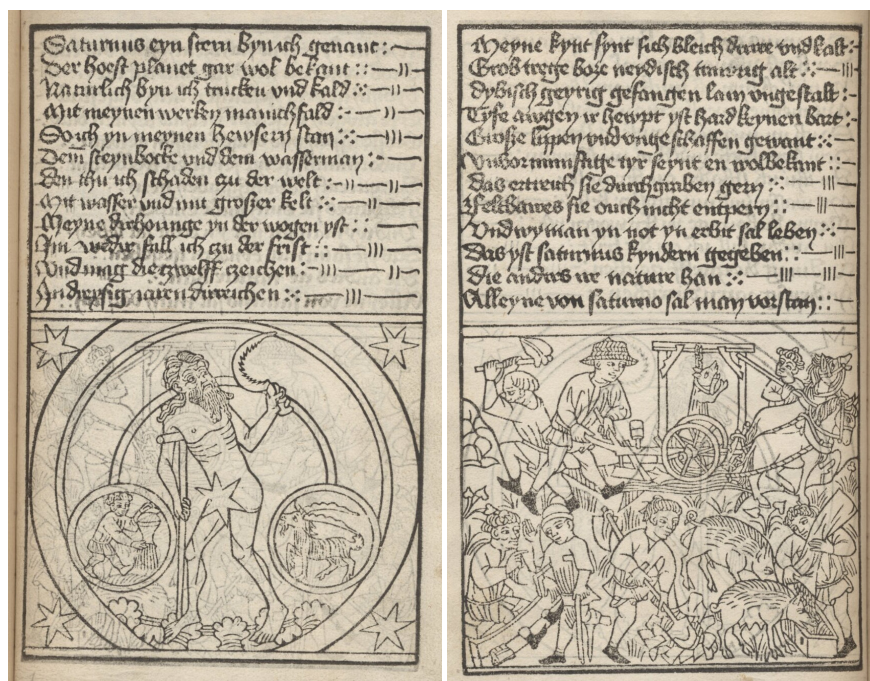 Saturnus eyn stern byn ich genant :
Der hoest planet gar wol bekant ::
Naturlich byn ich trucken vnd kald :·:
Mit meynen werken manichfald
So ich yn meynen hewsern stan :·:
Dem steynbocke vnd dem wasserman :·
Den thu ich schaden czu der welt :·
Mit wasser vnd mit groszer kelt :·:
Meyne dirhounge yn der wogen yst ::
Im wedir fall ich czu der frist :·
Vnd mag die czwelff czeichen :·:
In dreysig iaren dirreichen :·:
Meyne kynt synt sich bleich durre vnd kalt :·
Grob trege boze neydisch trawrig alt :·:
dybisch geyrig gefangen lam vngestalt :·
Tyfe awgen ir hewpt yst hard keynen bart :·
Grosze lippen vnd vngeschaffen gewant :·:
tyr seynt en wolbekant ::
Das ertreich sie durchgraben gern :·:
Feltbawes sie ouch nicht entpern ::
Vnd wy man yn not yn erbit sal leben :·
Das yst saturnus kyndern gegeben ::
Die anders ir nature han :·:
Alleyne von saturno sal man vorstan ::